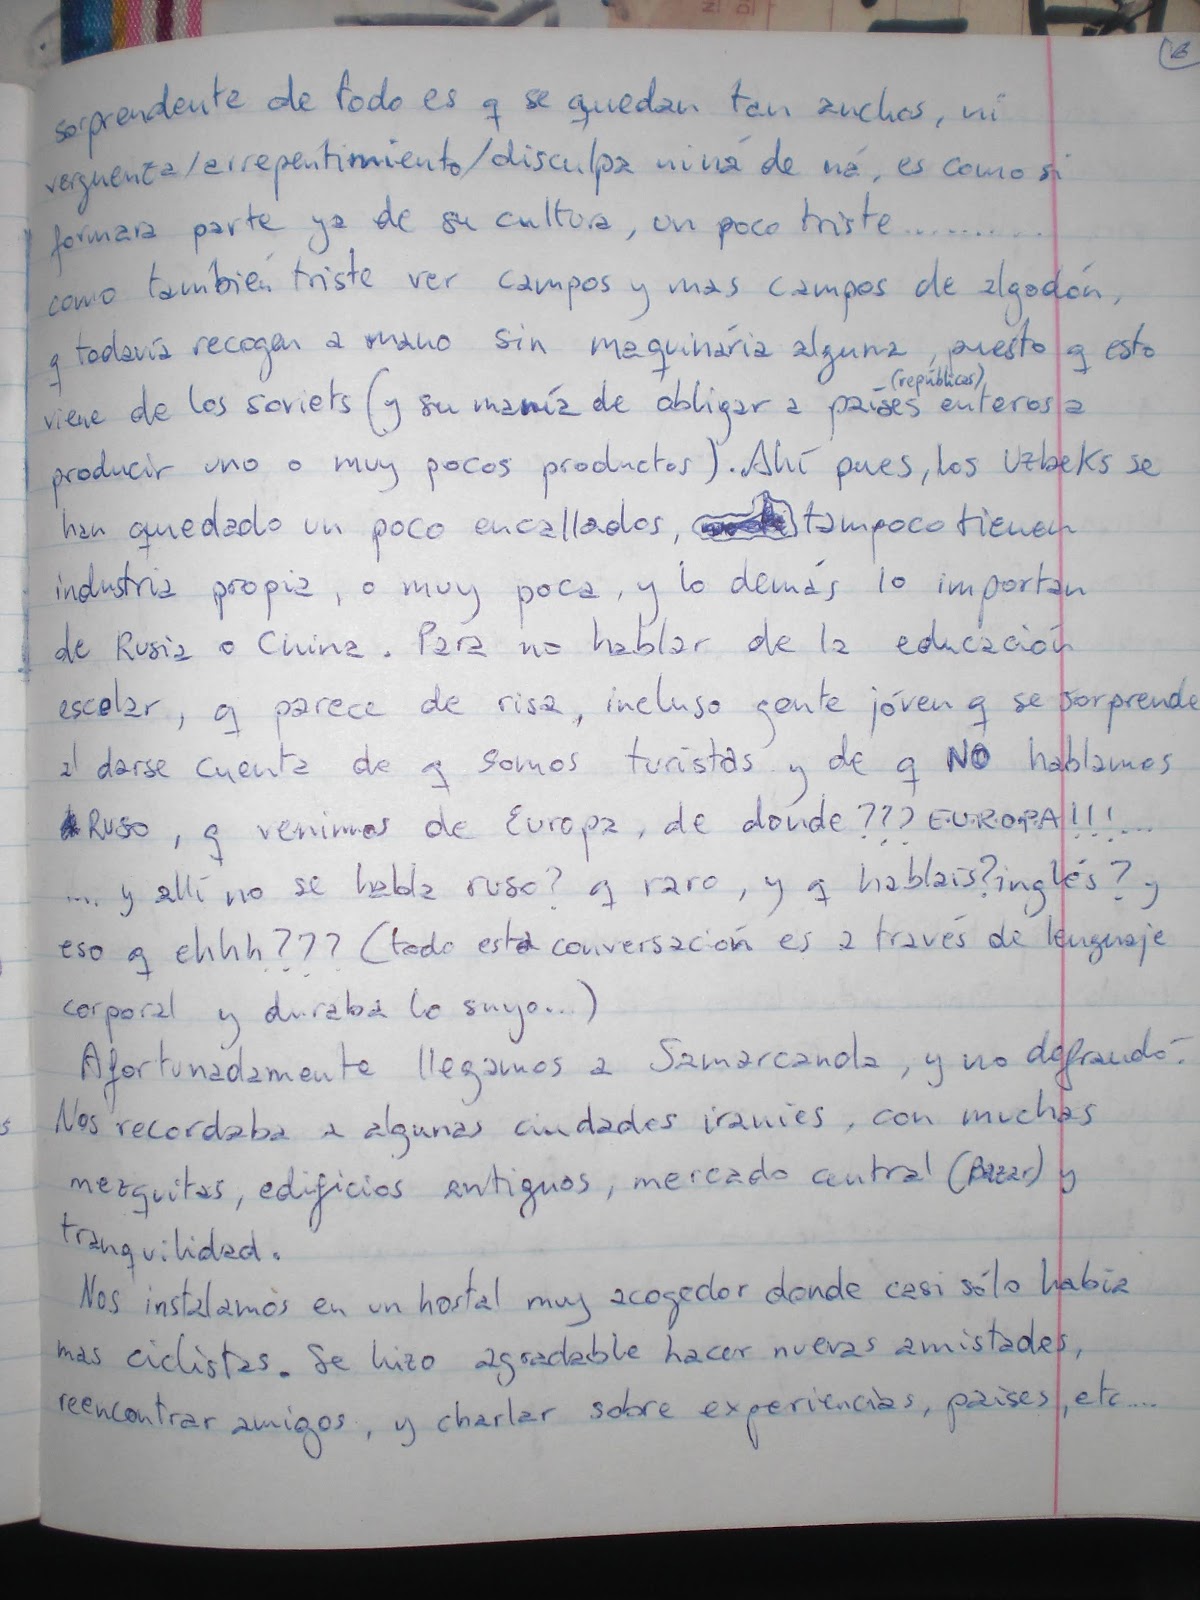 sorprendente de todo es q se quedan tan anchos, ni
verguenza/arrepentimiento/disculpa ni ná de ná, es como si
formara parte ya de su cultura, un poco triste..........
como también triste ver campos y mas campos de algodón,
q todavía recogen a mano sin maquinária alguna, puesto q esto
(repúblicas)
viene de los soviets (y su manía de obligar a países enteros a
producir uno o muy pocos productos). Ahí pues, los Uzbeks se
han quedado un poco encallados, tampoco tienen
industria propia, o muy poca, y lo demás lo importan
de Rusia o China. Para no hablar de la educación
escolar, q parece de risa, incluso gente jóven q se sorprende
al darse cuenta de q somos turistas y de q NO hablamos
Ruso, q venimos de Europa, de dónde??? E.U.R.O.P.A!!!...
.... y allí no se habla ruso? q raro, y q hablais? inglés? y
eso q ehhh??? (todo esta conversación es a través de lenguaje
corporal y duraba lo suyo...)
Afortunadamente llegamos a Samarcanda, y no defraudó.
Nos recordaba a algunas ciudades iraníes, con muchas
mezquitas, edificios antiguos, mercado central (Bazar) y
tranquilidad.
Nos instalamos en un hostal muy acogedor donde casi sólo había
mas ciclistas. Se hizo agradable hacer nuevas amistades,
reencontrar amigos, y charlar sobre experiencias, paises, etc....